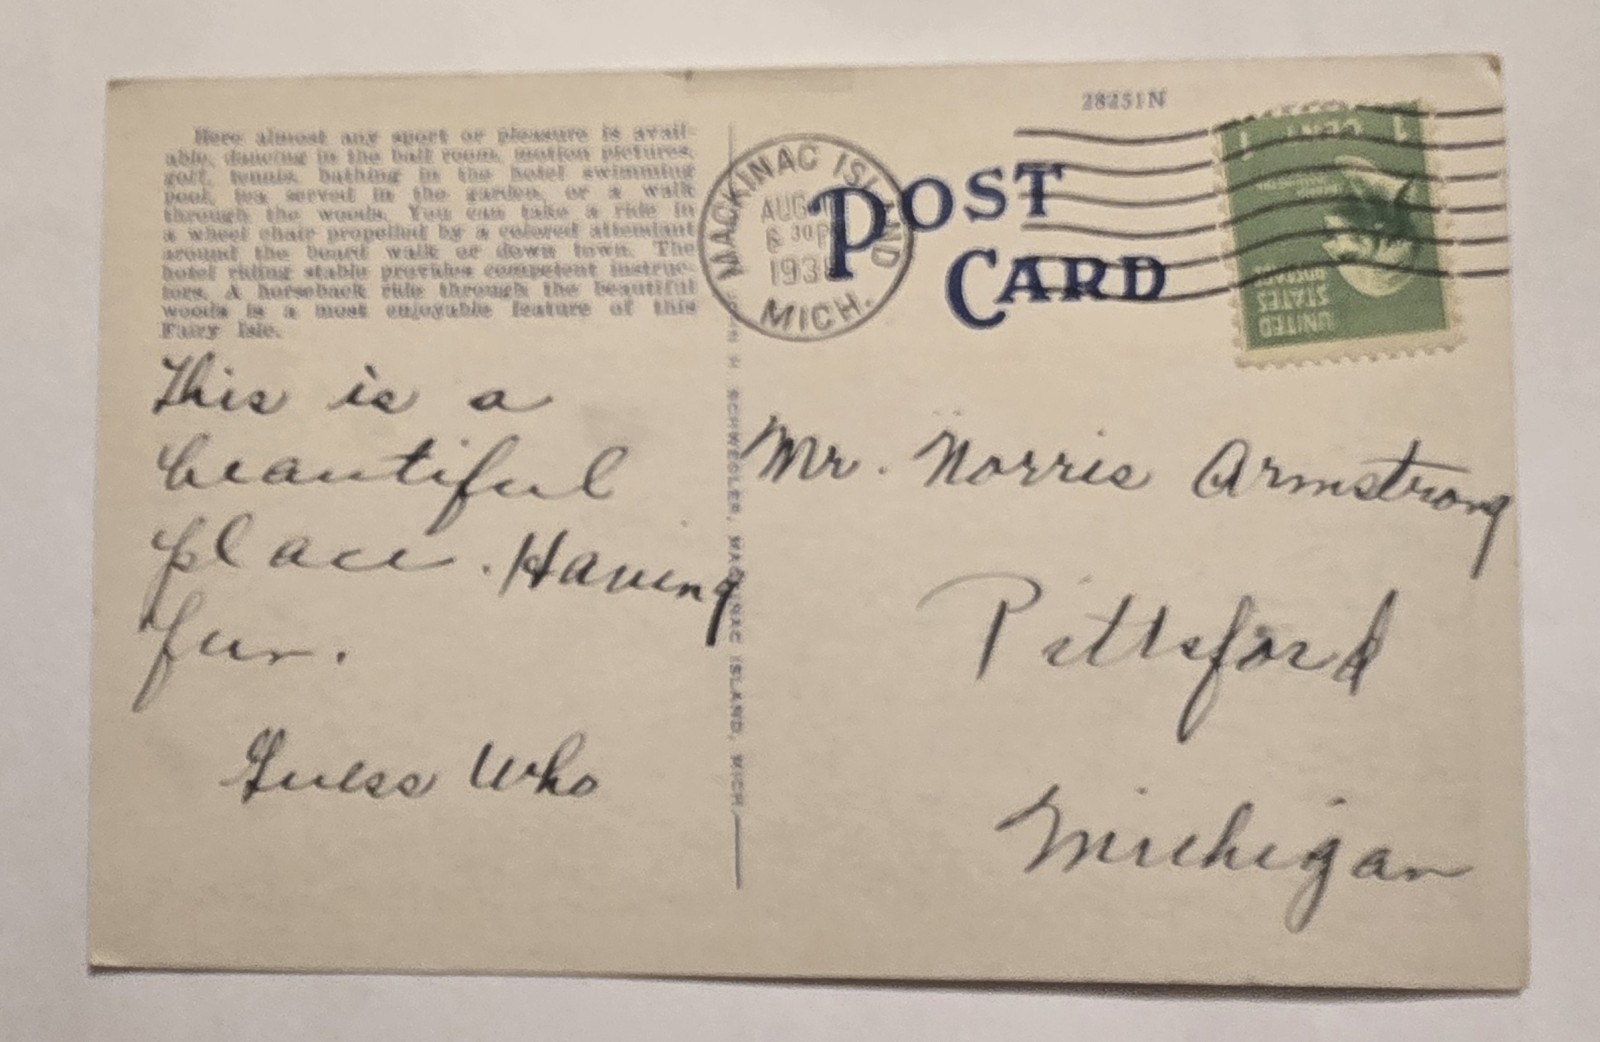 Here almost any sport or pleasure is avail-
able, dancing in the ball room, motion pictures,
golf, tennis, bathing in the hotel swimming
pool, tea served in the garden, or a walk
through the woods. You can take a ride in
a wheel chair propelled by a colored attendant
around the board walk or down town. The
hotel riding stable provides competent instruc-
tors. A horseback ride through the beautiful
woods is a most enjoyable feature of this
Fairy Isle.
This is a
beautiful
place. Having
fun.
Guess Who
JOHN H. SCHWEGLER, MACKINAC ISLAND, MICH.
28251N
MACKINAC ISLAND
AUG
6 30 P
MICH.
POST
CARD
1 CENT 1
UNITED
STATES
POSTAGE
Mr. Norris Armstrong
Pittsford
Michigan